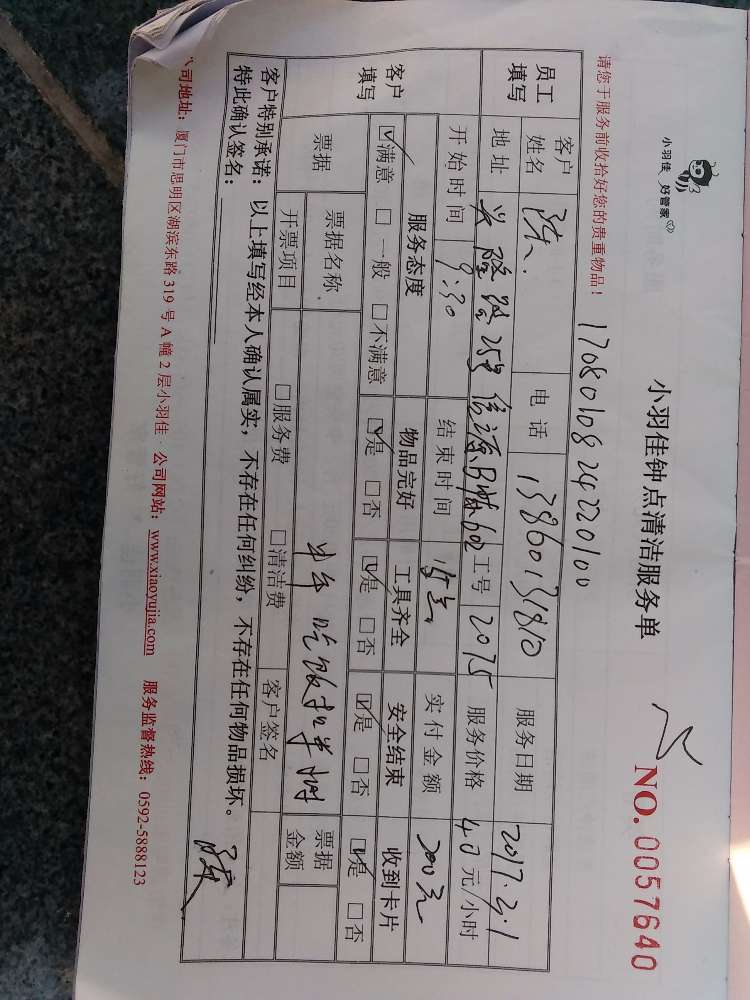 小羽佳 好管家
小羽佳钟点清洁服务单
NO. 0057640
请您于服务前收拾好您的贵重物品！
1708010824220100
员工填写 客户姓名 陈 电话 13860131810 服务日期 2017.3.1
地址 兴隆路25号信源大厦602 工号 2075 服务价格 40元/小时
开始时间 9:30 结束时间 15点 实付金额 200元
客户填写 服务态度 物品完好 工具齐全 安全结束 收到卡片
☑满意 □一般 □不满意 ☑是 □否 ☑是 □否 ☑是 □否 ☑是 □否
中午吃饭扣半小时
票据 票据名称 票据金额
开票项目 □服务费 □清洁费 客户签名
客户特别承诺：以上填写经本人确认属实，不存在任何纠纷，不存在任何物品损坏。
特此确认签名： 陈
司地址：厦门市思明区湖滨东路 319 号 A 幢 2 层小羽佳 公司网站：www.xiaoyujia.com 服务监督热线：0592-5888123